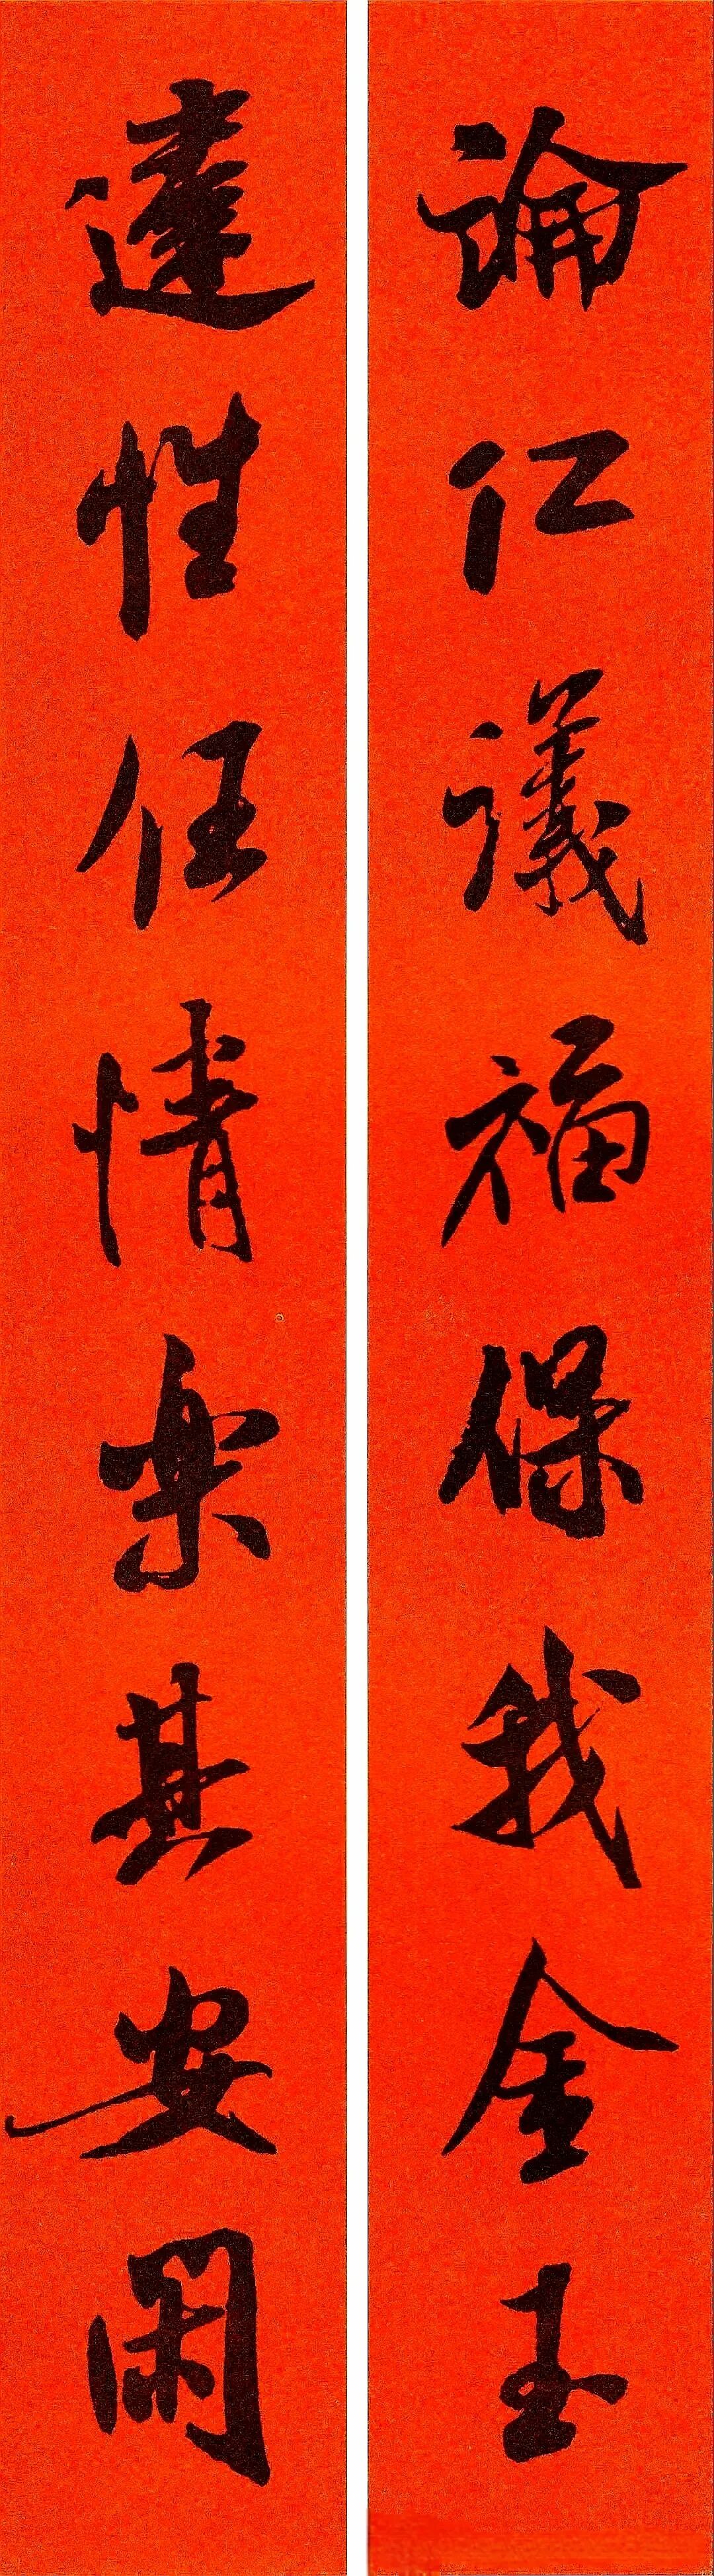 論仁議福保我金玉
達性任情樂其安閑